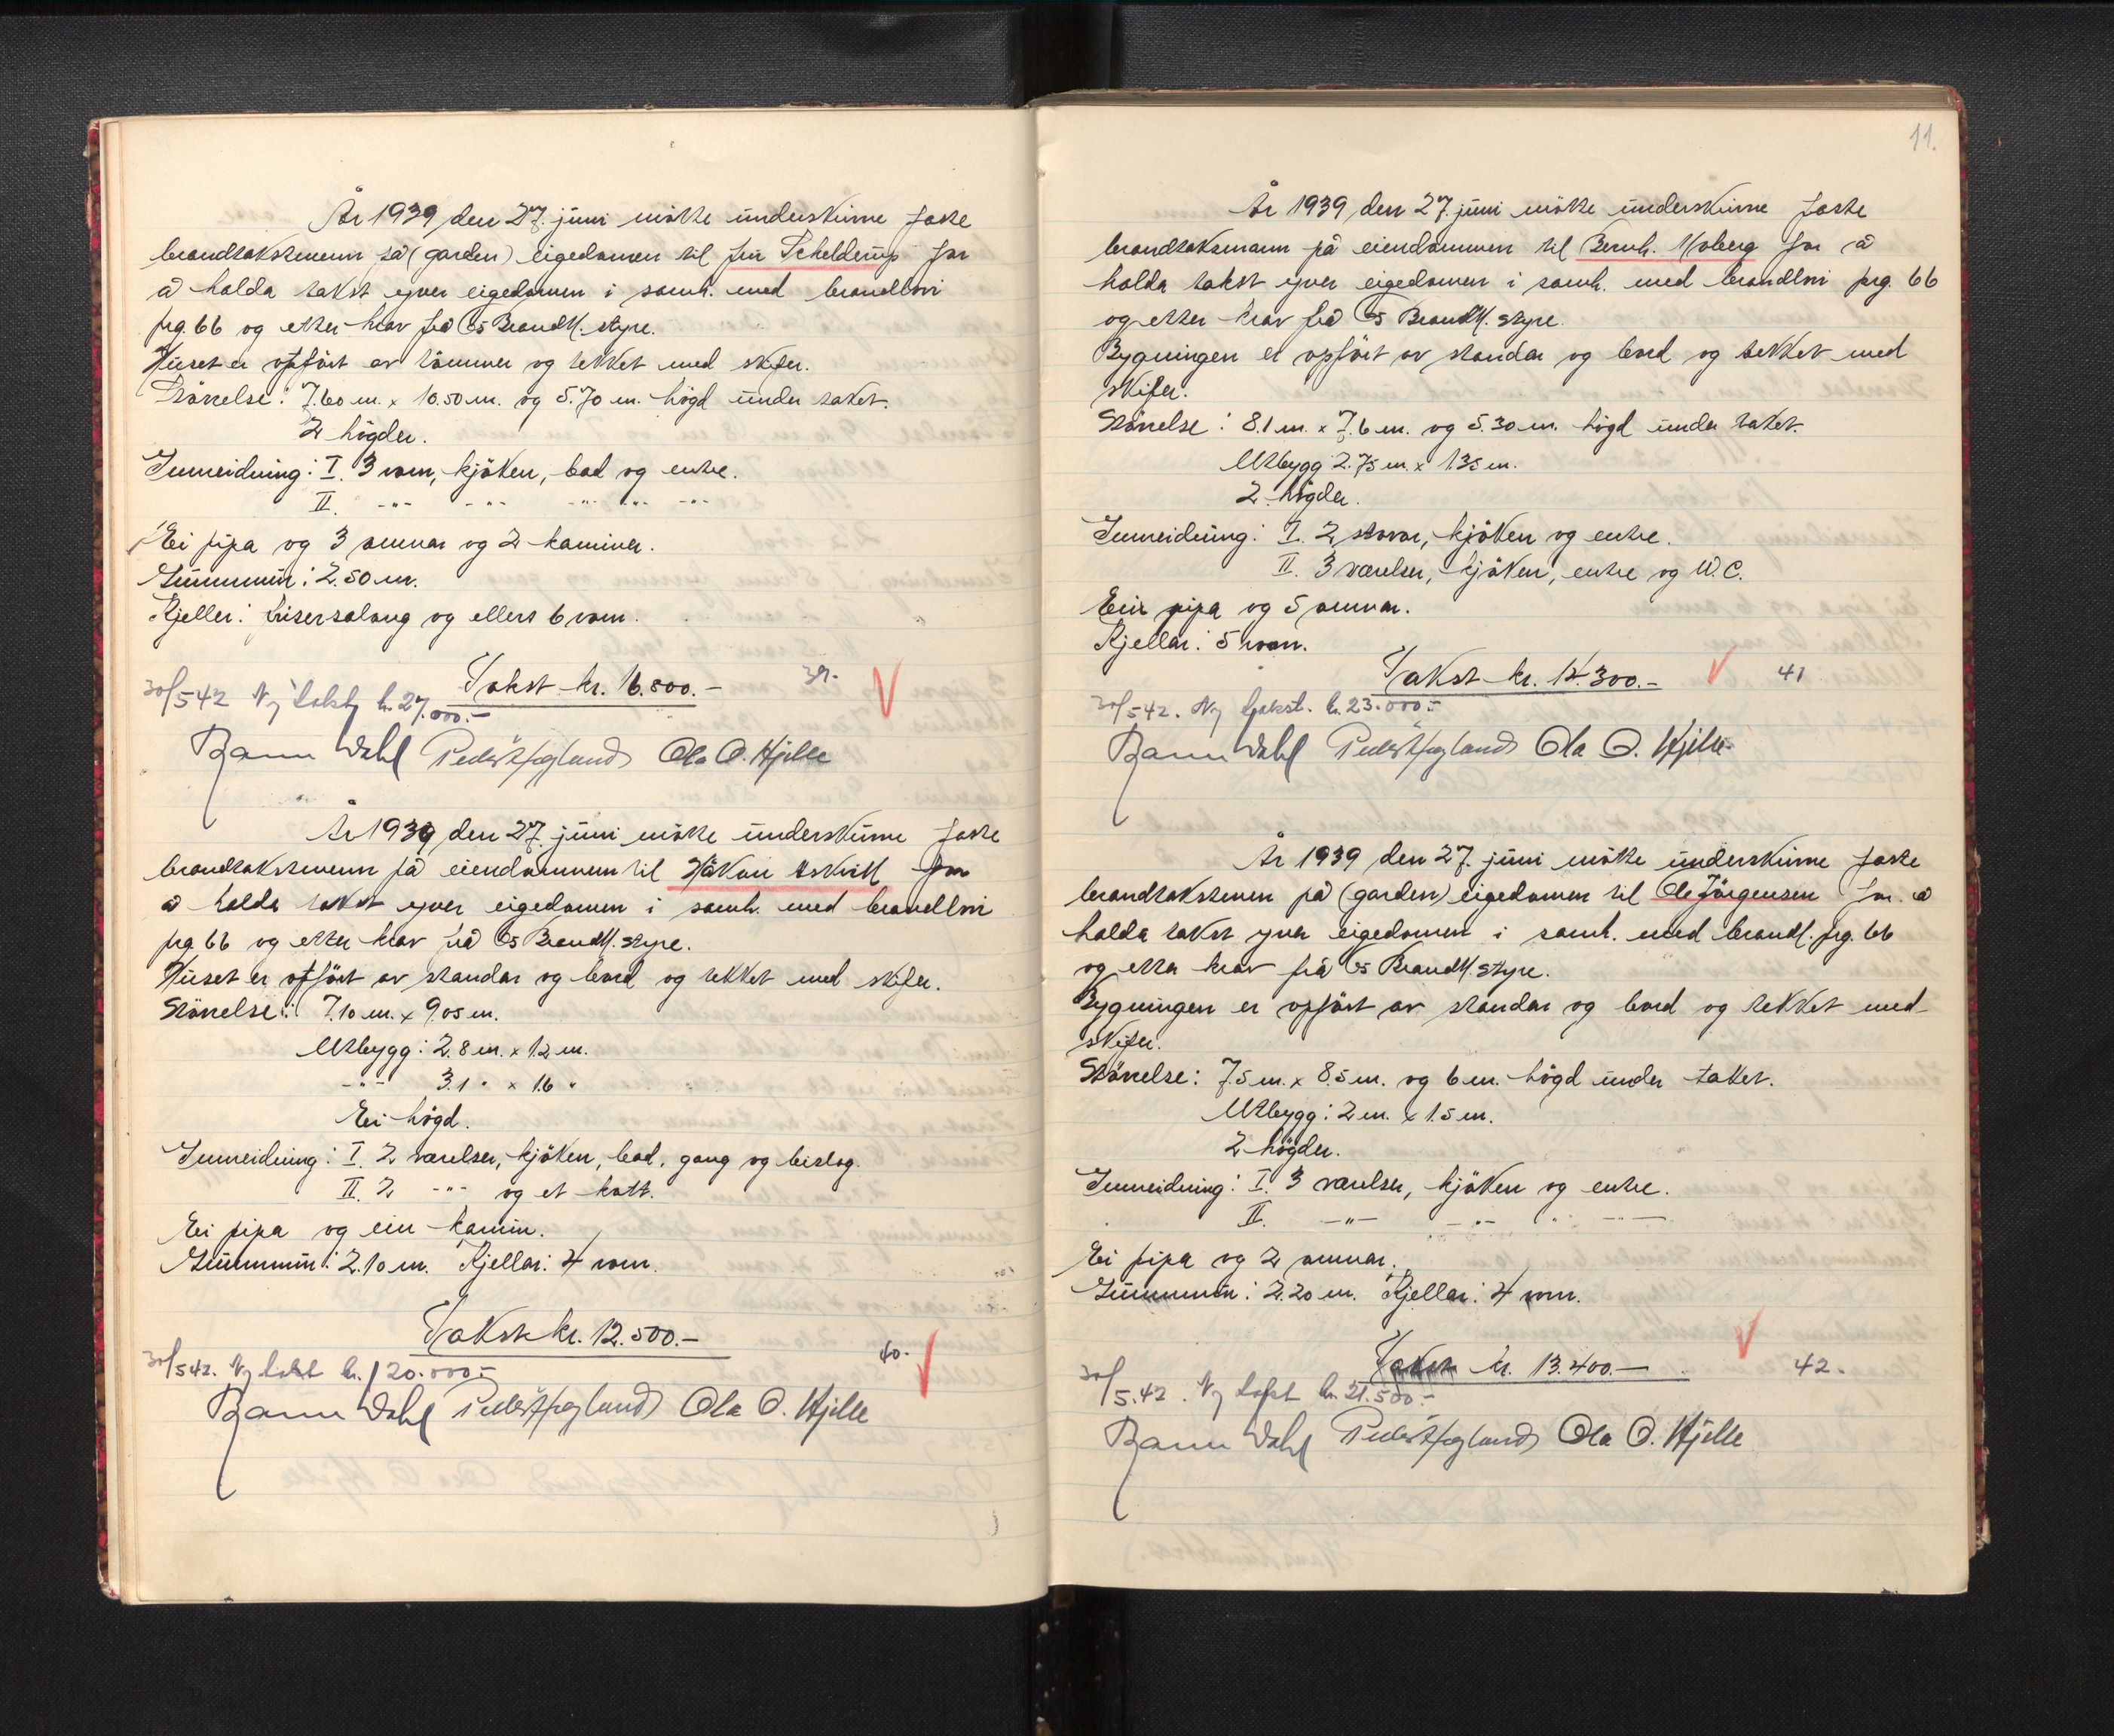 År 1939 den 27. juni møtte underskrivne faste
brandtakstmenn på (garden) eigedomen til fru Schelderup for
å halda takst yver eigedomen i samh. med brandlovi
prg. 66 og etter krav frå Os Brandk. styre.
Huset er opført av tömmer og tekket med skifer.
Störrelse: 7.60 m. x 10.50 m. og 5.70 m. högd under taket.
2 högder.
Innreidning: I. 3 rom, kjöken, bad og entre.
II. -"- -"- -"- -"- -"-
Ei pipa og 3 omnar og 2 kaminer.
Grunnmur: 2.50 m.
Kjeller: frisersalong og ellers 6 rom.
Takst kr. 16.800.-
39.
30/5 42 Ny takst kr. 27.000.-
Dahl Ola O. Hjelle
År 1939 den 27. juni møtte underskrivne faste
brandtakstmenn på eiendommen til Håkon Askvik for
å halda takst yver eigedomen i samh. med brandlovi
prg. 66 og etter krav frå Os Brandk. styre.
Huset er opført av standar og bord og tekket med skifer.
Störrelse: 7.10 m. x 9.05 m.
Utbygg: 2.8 m. x 1.2 m.
-"- 3.1 " x 1.6 "
Ei högd.
Innreidning: I. 2 værelser, kjöken, bad, gang og bislag.
II. 2 -"- og et kott.
Ei pipa og ein kamin.
Grunnmur: 2.10 m. Kjellar: 4 rom.
Takst kr. 12.500.-
40.
30/5 42. Ny takst kr. 20.000.-
Dahl Ola O. Hjelle
11.
År 1939 den 27. juni møtte underskrivne faste
brandtaksmann på eiendommen til Bernh. Moberg for å
halda takst yver eigedomen i samh. med brandlovi prg. 66
og etter krav frå Os Brandk. styre.
Bygningen er opført av standar og bord og tekket med
skifer.
Störrelse: 8.1 m. x 7.6 m. og 5.30 m. högd under taket.
Utbygg 2.75 m. x 1.35 m.
2 högder.
Innreidning: I. 2 stovor, kjöken og entre.
II. 3 værelser, kjöken, entre og W.C.
Ein pipa og 5 omnar.
Kjellar: 5 rom.
Takst kr. 12.300.-
41
30/5 42. Ny takst. kr. 23.000.-
Dahl Ola O. Hjelle
År 1939 den 27. juni møtte underskrivne faste
brandtakstmen på (garden) eigedomen til Ole Jörgensen for å
halda takst yver eigedomen i samh. med brandl. prg. 66
og etter krav frå Os Brandk. styre.
Bygningen er opført av standar og bord og tekket med
skifer.
Störrelse: 7.5 m. x 8.5 m. og 6 m. högd under taket.
Utbygg: 2 m. x 1.5 m.
2 högder.
Innreidning: I. 3 værelser, kjöken og entre.
II. -"- -"- " -"-
Ei pipa og 2 omnar.
Grunnmur: 2.20 m. Kjellar: 4 rom.
Takst kr. 13.400.-
42.
30/5.42. Ny takst kr. 21.500.-
Dahl Ola O. Hjelle